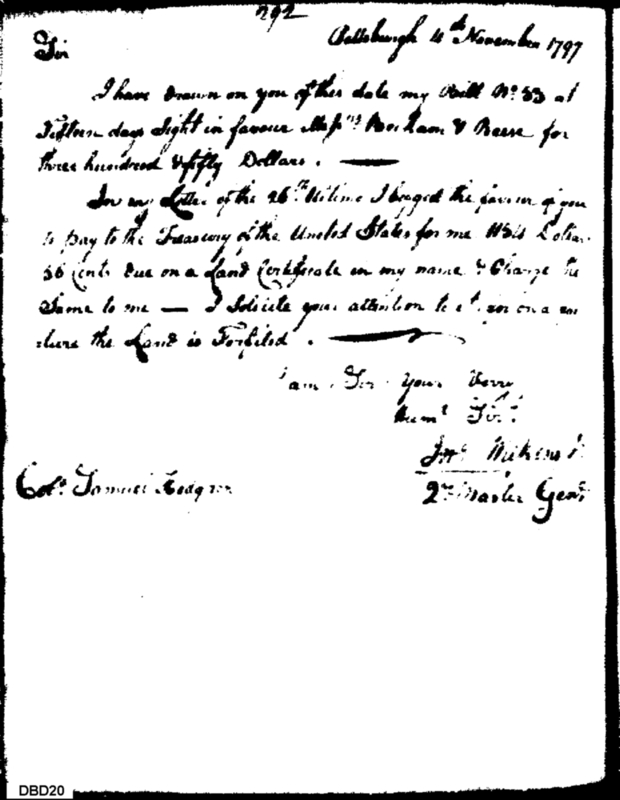 292
Pittsburgh 4th November 1797
Sir
I have drawn on you of this date my Bill No. 33 at
Fifteen days Sight in favour Messrs & Reese for
three hundred & fifty Dollars.
In my Letter of the 26th Ultimo I begged the favour of you
to pay to the Treasury of the United States for me
56 Cents due on a Land Certificate in my name & Charge the
Same to me — I Solicite your attention to it as on a
the Land is Forfited.
I am Sir Your Verry
Humt Svt
Jno Wilkins Jr
Colo Samuel Hodgson
Qr Master Genl
DBD20